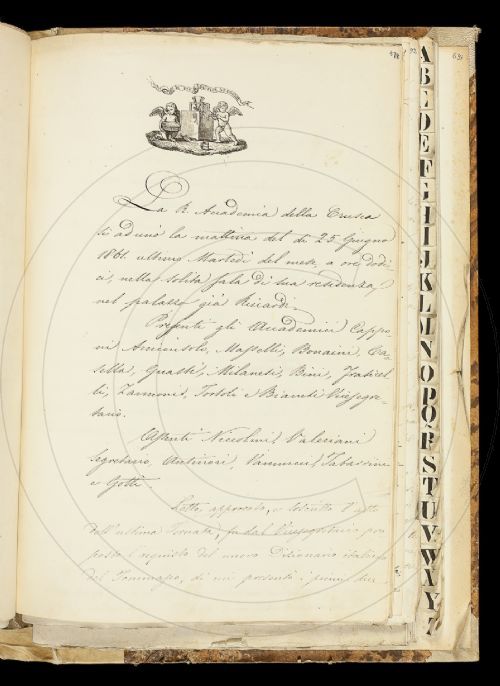 La R. Accademia della Crusca
si adunò la mattina del dì 25. Giugno
1861. ultimo Martedì del mese, a ore dodi-
ci, nella solita sala di sua residenza,
nel palazzo già Riccardi.
Presenti gli Accademici Cappo-
ni Arciconsolo, Masselli, Bonaini, Ca-
sella, Guasti, Milanesi, Bini, Fraticel-
li, Zannoni, Tortoli e Bianchi Vicesegre-
tario.
Assenti Niccolini, Valeriani
Segretario, Antinori, Vannucci, Tabarrini
e Gotti.
Letto, approvato, e soscritto l'atto
dell'ultima Tornata, fu dal Vicesegretario pro-
posto l'acquisto del nuovo Dizionario italiano
del Tommaseo, di cui presentò i primi due
A
B
C
D
E
F
G
H
I
J
K
L
M
N
O
P
Q
R
S
T
U
V
W
X
Y
Z